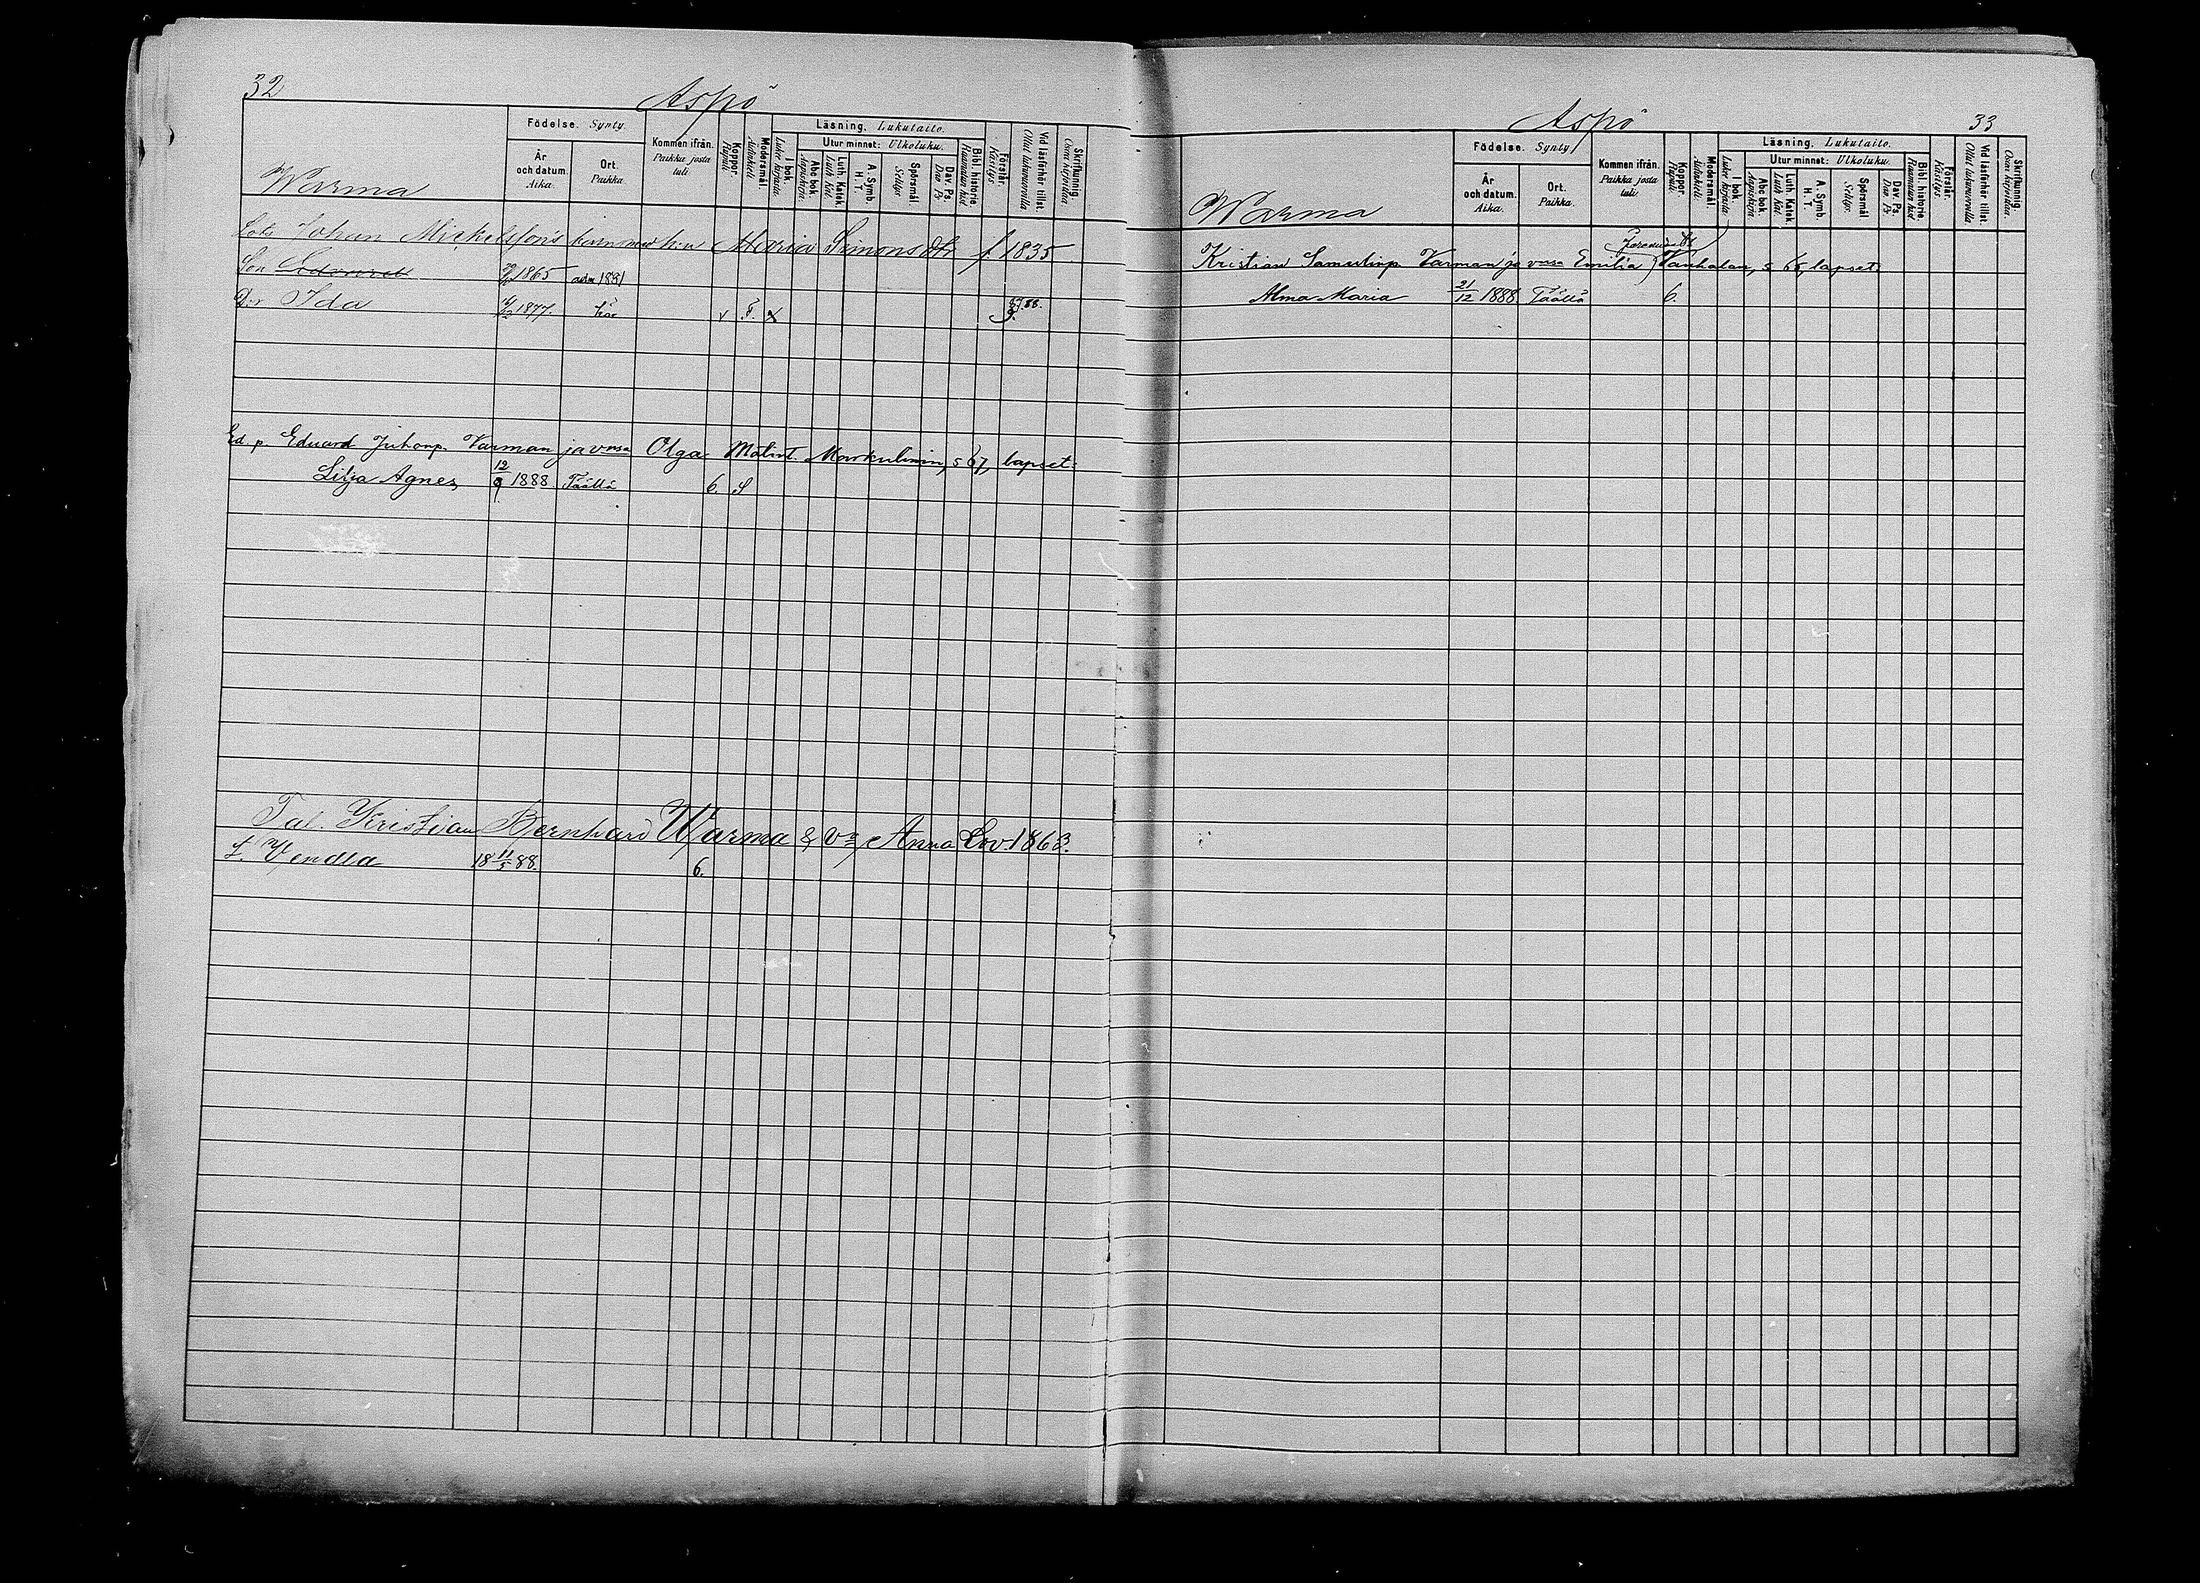 32
Aspö
Warma
Födelse. Synty.
År och datum. Aika.
Ort. Paikka.
Kommen ifrån. Paikka josta tuli.
Koppor. Rupuli
Modersmål. Äidinkieli
Läsning. Lukutaito.
I bok. Lukee kirjasta.
Utur minnet: Ulkoluku.
Abc bok. Aapiskirja.
Luth. Katek. Luth. Kat.
A. Symb. H. T.
Spörsmål. Selitys.
Dav. Ps. Dav. Ps.
Bibl. historie. Raamatun hist.
Förstår. Käsitys.
Vid läsförhör tillst. Ollut lukuvuorolla
Skrifkunnig. Osaa kirjoittaa
Lots Johan Mickelssons barn med h:u Maria Simonsdtr f. 1835
Son Edvard 1865 1881
D:r Ida 1877. här v F. x 88.
Ed. p. Eduard Juhonp. Varman ja vmsa Olga Matint. Markulinin, s 67, lapset:
Lilja Agnes 12/9 1888 Täällä 6. S
Tal. Kristian Bernhard Warma & Anna Lov. 1863.
L. Vendla 18 11/5 88. 6.
Aspö
33
Warma
Födelse. Synty.
År och datum. Aika.
Ort. Paikka.
Kommen ifrån. Paikka josta tuli.
Koppor. Rupuli.
Modersmål. Äidinkieli
Läsning. Lukutaito.
I bok. Lukee kirjasta
Utur minnet: Ulkoluku.
Abc bok. Aapiskirja
Luth. Katek. Luth. Kat.
A. Symb. H. T.
Spörsmål Selitys.
Dav. Ps. Dav. Ps
Bibl. historie. Raamatun hist
Förstår. Käsitys.
Vid läsförhör tillst. Ollut lukuvuorolla
Skrifkunnig. Osaa kirjoittaa.
Kristian Samulinp. Varman ja vmsa Emilia Vanhalan, s 66, lapset:
Alma Maria 21/12 1888. Täällä 6.